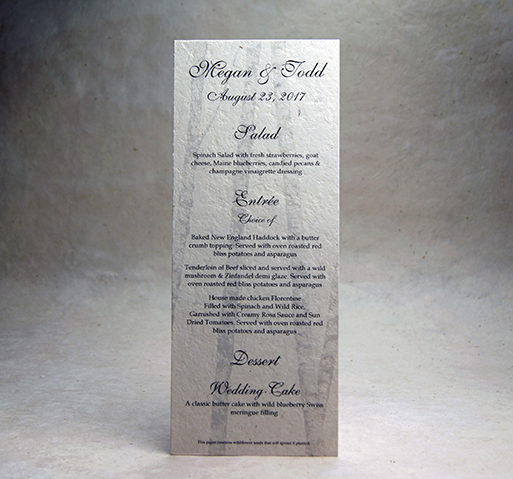 Megan & Todd
August 23, 2017
Salad
Spinach Salad with fresh strawberries, goat
cheese, Maine blueberries, candied pecans &
champagne vinaigrette dressing
Entrée
Choice of
Baked New England Haddock with a butter
crumb topping. Served with oven roasted red
bliss potatoes and asparagus
Tenderloin of Beef sliced and served with a wild
mushroom & Zinfandel demi glaze. Served with
oven roasted red bliss potatoes and asparagus
House made chicken Florentine
Filled with Spinach and Wild Rice,
Garnished with Creamy Rosa Sauce and Sun
Dried Tomatoes. Served with oven roasted red
bliss potatoes and asparagus
Dessert
Wedding Cake
A classic butter cake with wild blueberry Swiss
meringue filling
This paper contains wildflower seeds that will sprout if planted.